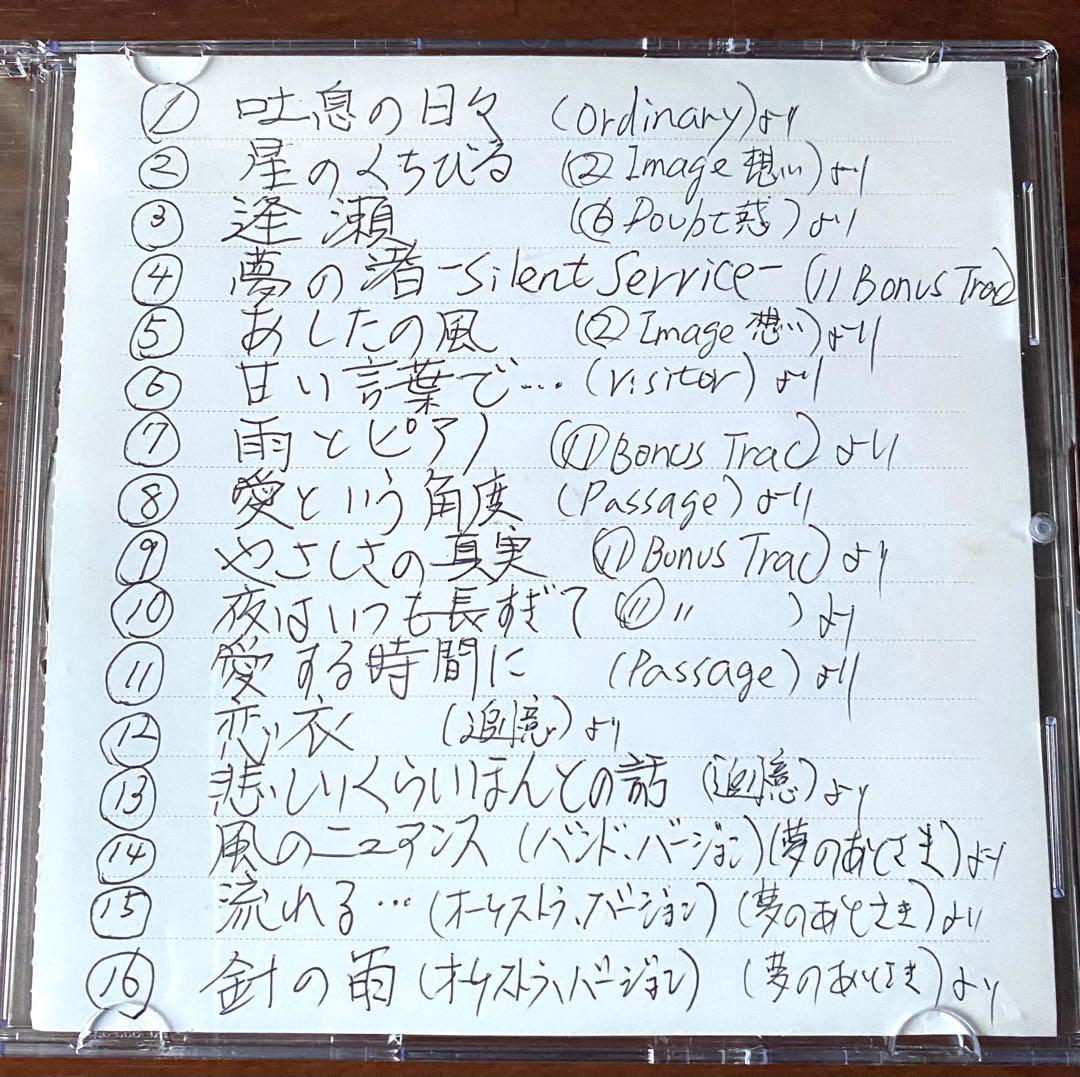 ① 吐息の日々 (Ordinary)より
② 星のくちびる (② Image 想い)より
③ 逢瀬 (⑥ Doubt 惑)より
④ 夢の渚 -Silent Service- (11 Bonus Trac)
⑤ あしたの風 (② Image 想い)より
⑥ 甘い言葉で… (Visitor)より
⑦ 雨とピアノ (⑪ Bonus Trac)より
⑧ 愛という角度 (Passage)より
⑨ やさしさの真実 (⑪ Bonus Trac)より
⑩ 夜はいつも長すぎて (⑪ 〃 )より
⑪ 愛する時間に (Passage)より
⑫ 恋衣 (追憶)より
⑬ 悲しいくらいほんとの話 (追憶)より
⑭ 風のニュアンス (バンド、バージョン)(夢のあとさき)より
⑮ 流れる… (オーケストラ、バージョン) (夢のあとさき)より
⑯ 針の雨 (オーケストラ、バージョン) (夢のあとさき)より